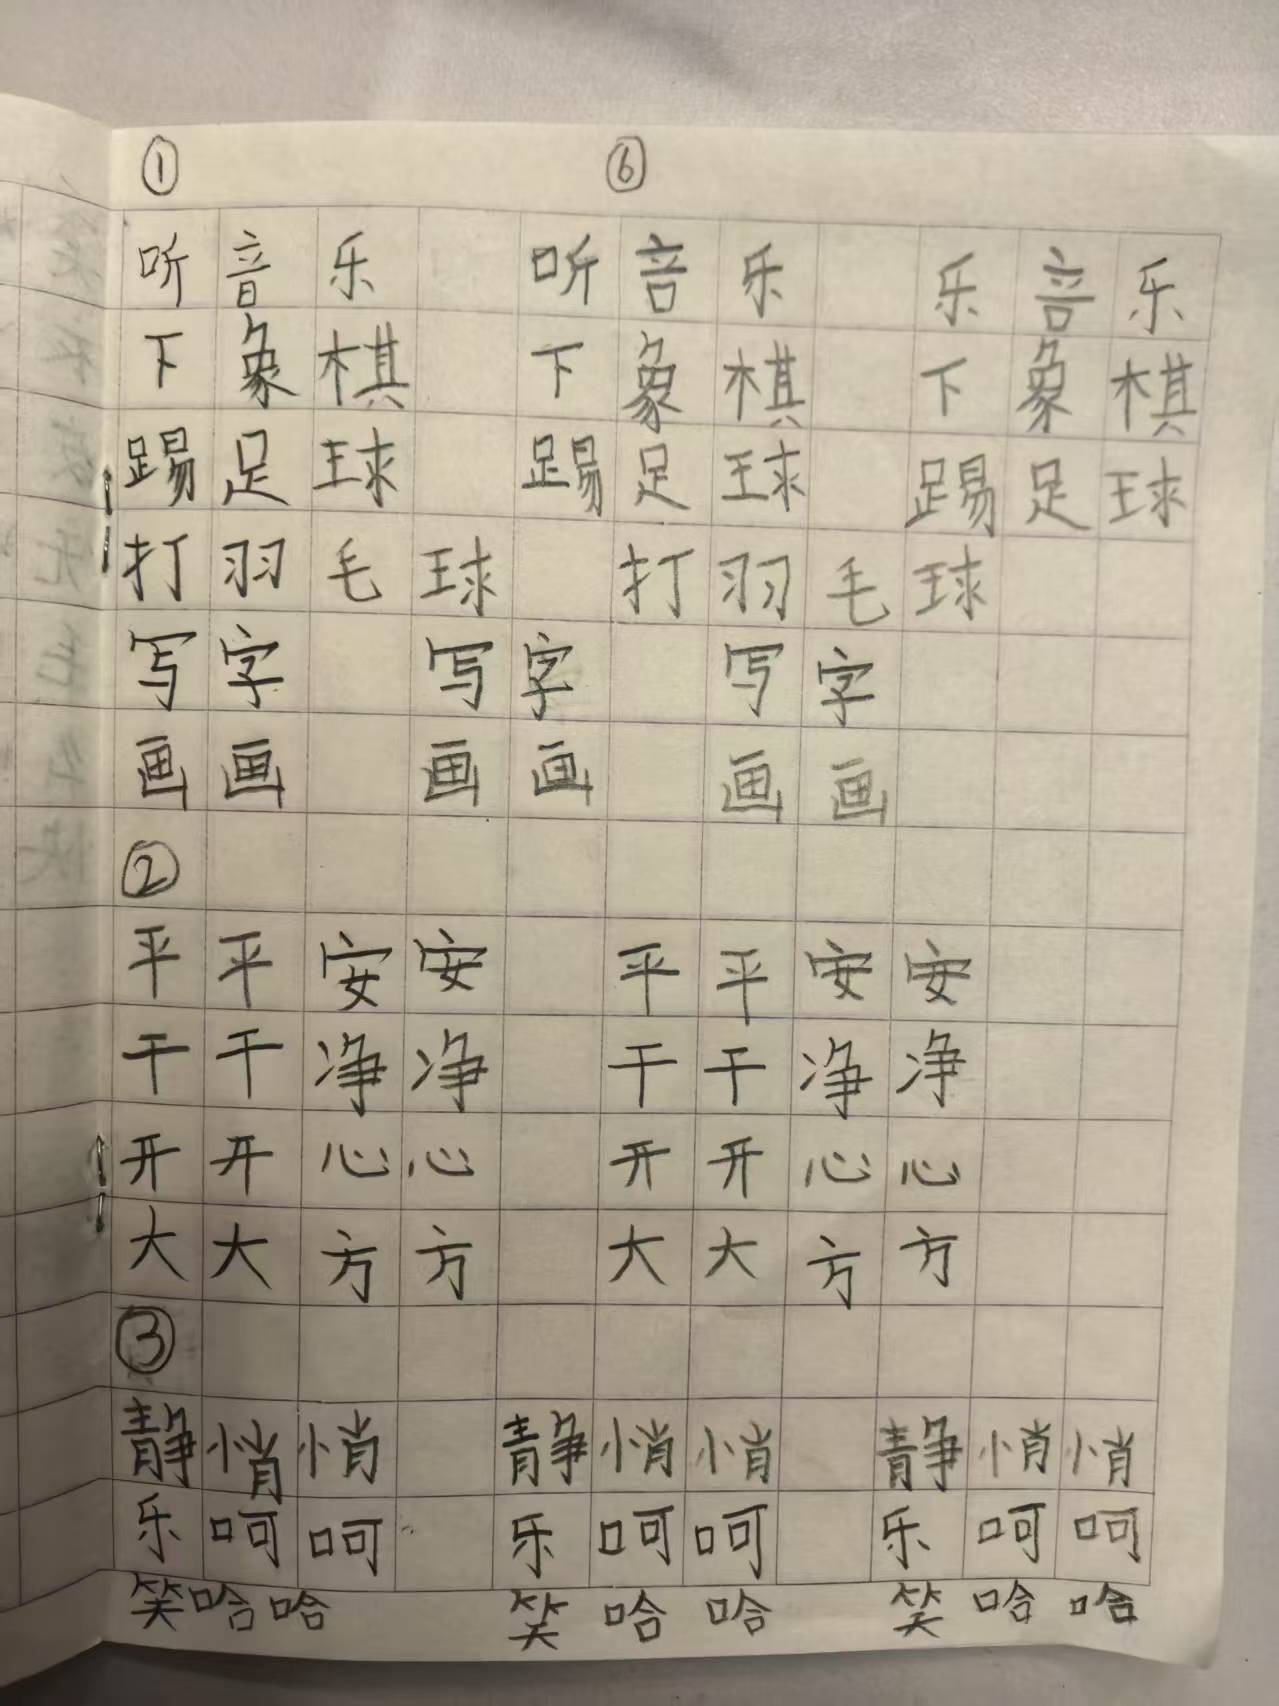 ① ⑥
听音乐 听音乐 乐音乐
下象棋 下象棋 下象棋
踢足球 踢足球 踢足球
打羽毛球 打羽毛球
写字 写字 写字
画画 画画 画画
②
平平安安 平平安安
干干净净 干干净净
开开心心 开开心心
大大方方 大大方方
③
静悄悄 静悄悄 静悄悄
乐呵呵 乐呵呵 乐呵呵
笑哈哈 笑哈哈 笑哈哈